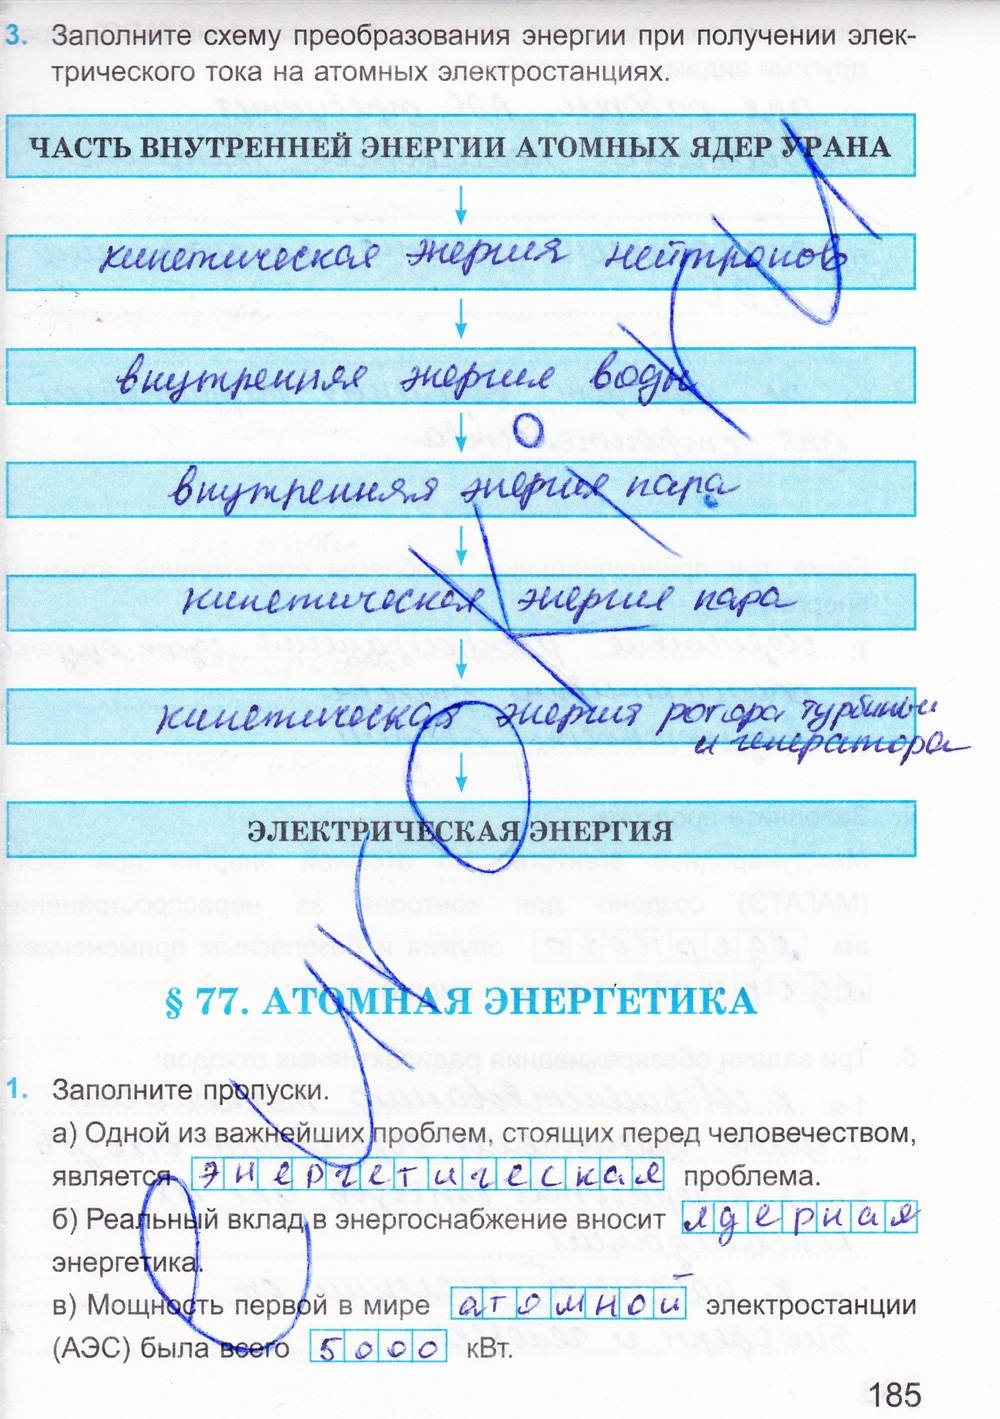 3. Заполните схему преобразования энергии при получении элек-
трического тока на атомных электростанциях.
ЧАСТЬ ВНУТРЕННЕЙ ЭНЕРГИИ АТОМНЫХ ЯДЕР УРАНА
кинетическая энергия нейтронов
внутренняя энергия воды
внутренняя энергия пара
кинетическая энергия пара
кинетическая энергия ротора турбины
и генератора
ЭЛЕКТРИЧЕСКАЯ ЭНЕРГИЯ
§ 77. АТОМНАЯ ЭНЕРГЕТИКА
1. Заполните пропуски.
а) Одной из важнейших проблем, стоящих перед человечеством,
является энергетическая проблема.
б) Реальный вклад в энергоснабжение вносит ядерная
энергетика.
в) Мощность первой в мире атомной электростанции
(АЭС) была всего 5000 кВт.
185